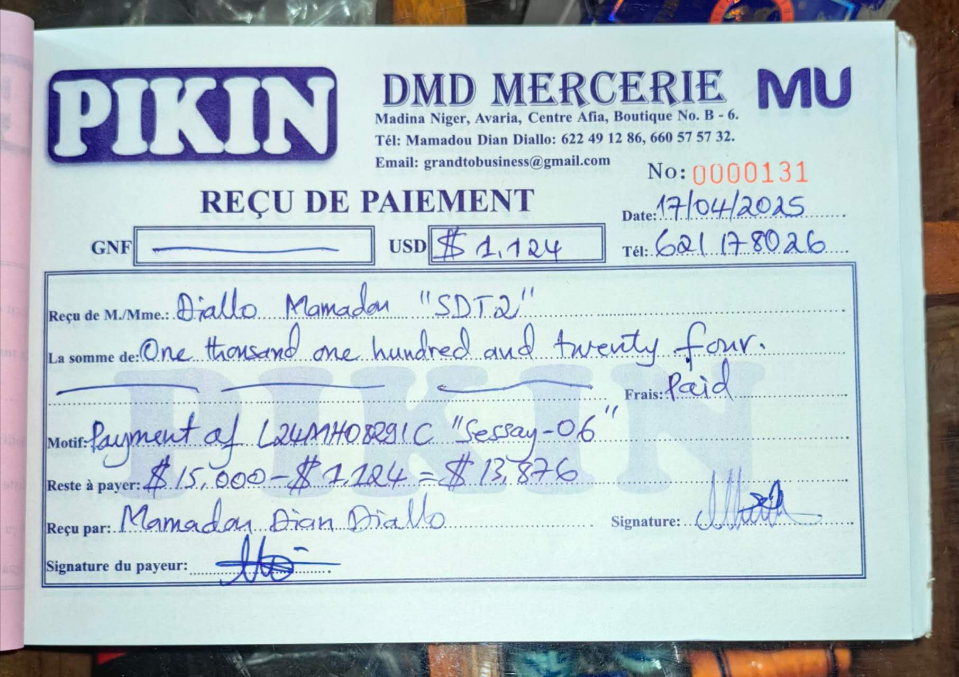 PIKIN
DMD MERCERIE
MU
Madina Niger, Avaria, Centre Afia, Boutique No. B - 6.
Tél: Mamadou Dian Diallo: 622 49 12 86, 660 57 57 32.
Email: grandtobusiness@gmail.com
No: 0000131
REÇU DE PAIEMENT
Date: 17/04/2025
GNF USD $ 1,124 Tél: 621 178026
Reçu de M./Mme.: Diallo Mamadou "SDT2"
La somme de: One thousand one hundred and twenty four.
Frais: Paid
Motif: Payment of L24MH08291C "Sessay-06"
Reste à payer: $ 15,000 - $ 1,124 = $ 13,876
Reçu par: Mamadou Dian Diallo Signature:
Signature du payeur:
PIKIN